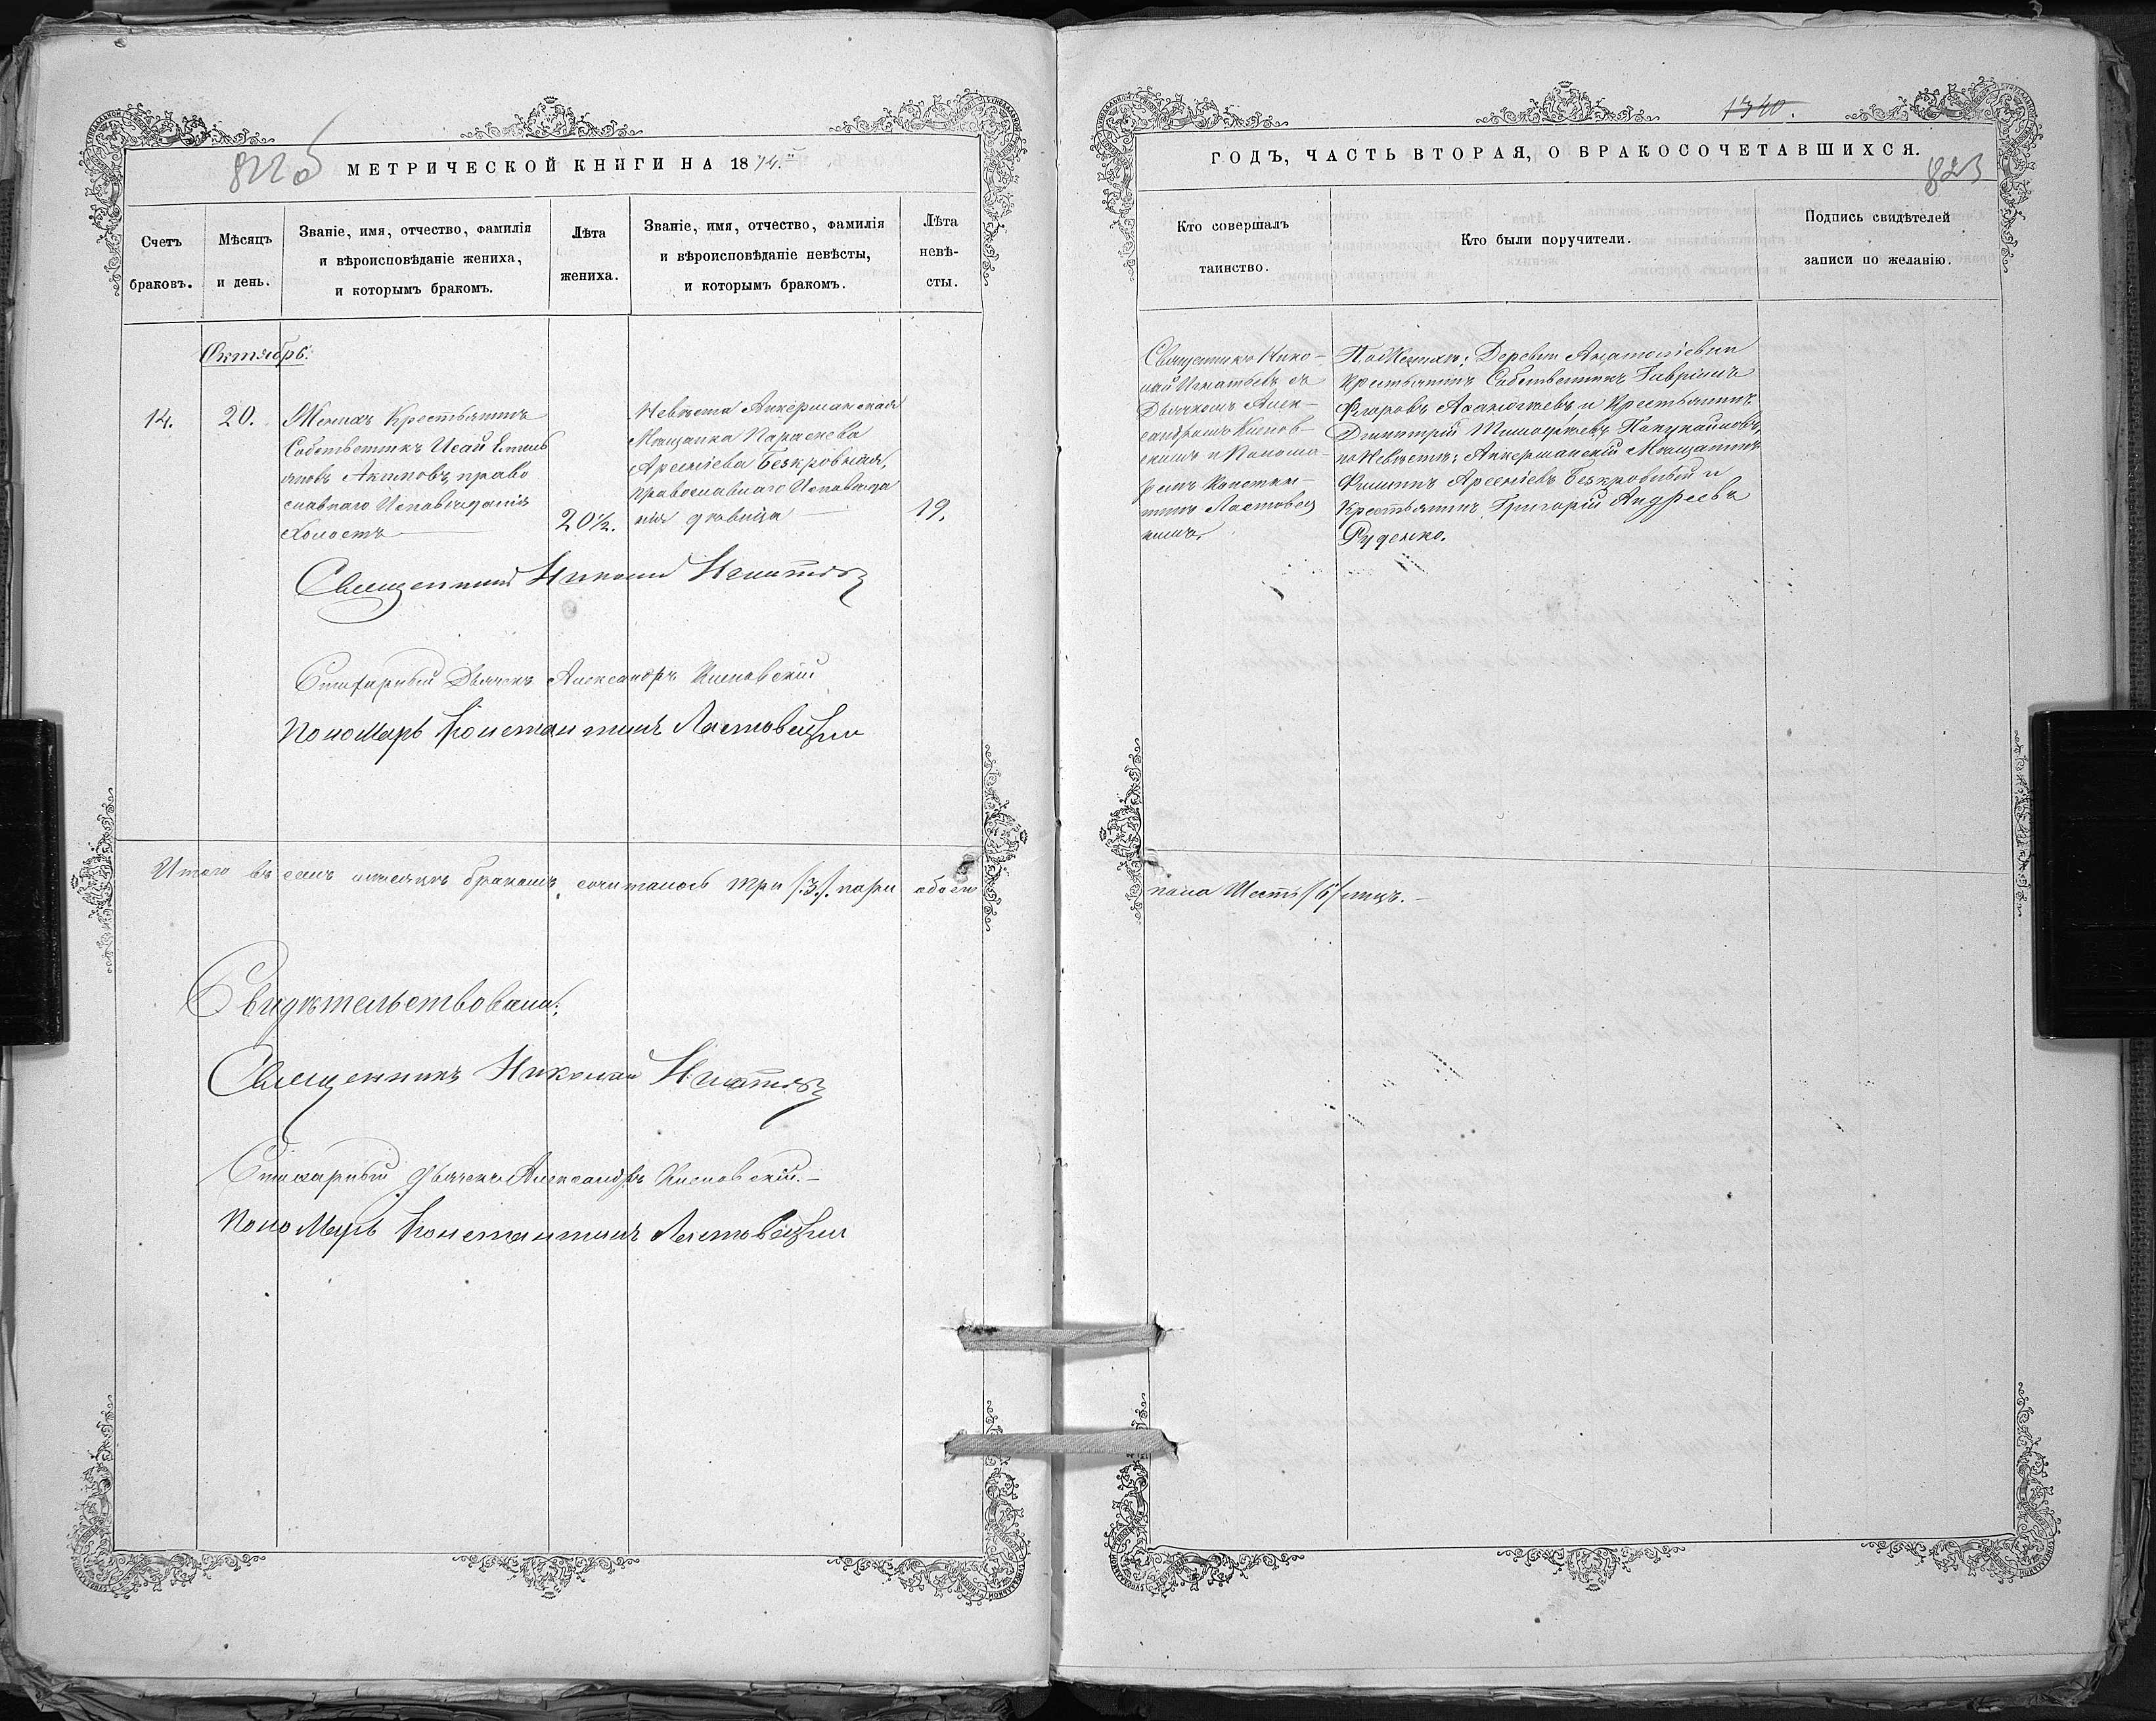 822 об
МЕТРИЧЕСКОЙ КНИГИ НА 1874.й
Счетъ браковъ.
Мѣсяцъ и день.
Званіе, имя, отчество, фамилія
и вѣроисповѣданіе жениха,
и которымъ бракомъ.
Лѣта жениха.
Званіе, имя, отчество, фамилія
и вѣроисповѣданіе невѣсты,
и которымъ бракомъ.
Лѣта невѣ-
сты.
Октябрь.
14.
20.
Женихъ Крестьянинъ
Собственникъ Исай
Акимовъ, право
славнаго Исповѣданія
Холостъ
20½.
Невѣста Аккерманская
Мѣщанка Параскева
Арсеніева Безкровная,
православнаго Исповѣда
нія дѣвица
19.
Священникъ Николай Игнатьевъ
Стихарный Дьячекъ Александръ Кисновскій
Пономарь Константинъ Лястовецкій
Итого въ семъ мѣсяцѣ бракомъ сочиталось три /3/ пары обоего
Свидѣтельствовали:
Священникъ Николай Игнатьевъ
Стихарный Дьячекъ Александръ Кисновскій.
Пономарь Константинъ Лястовецкій
1340.
ГОДЪ, ЧАСТЬ ВТОРАЯ, О БРАКОСОЧЕТАВШИХСЯ.
823
Кто совершалъ
таинство.
Кто были поручители.
Подпись свидѣтелей
записи по желанію.
Священникъ Нико-
лай Игнатьевъ съ
Дьячкомъ Алек-
сандромъ Киснов-
скимъ и Понома-
ремъ Констан-
тиномъ Лястовец
кимъ.
По Женихѣ: Деревни Анатолievки
Крестьянинъ Собственникъ Гавріилъ
Флоровъ и Крестьянинъ
Димитрій Тимофѣевъ
по Невѣстѣ: Аккерманскій Мѣщанинъ
Филиппъ Арсеніевъ Безкровный и
Крестьянинъ Григорій Андреевъ
Руденко.
пола Шесть /6/ лицъ.